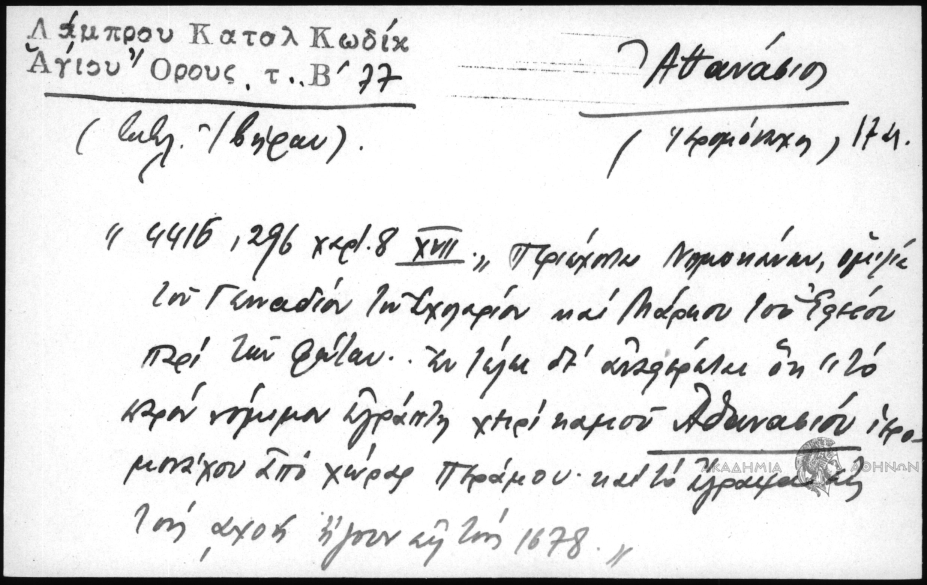 Λάμπρου Καταλ Κωδίκ
Ἁγίου Ὄρους, τ.. Β' 77
Ἀθανάσιος
(Ἰβήρων).
(ἱερομόναχος, 17 αι.
" 4416, 296 χαρτ. 8 XVII „ Περιέχεται Νομοκάνων, ὁμιλία
τοῦ Γενναδίου τοῦ Σχολαρίου καὶ Μάρκου τοῦ Ἐφέσου
περὶ τῶν φώτων.. Ἐν τέλει δὲ ἀναφέρεται ὅτι "τὸ
ἱερὸν νόμιμον ἐγράφτη χειρὶ καμοῦ Ἀθανασίου ἱερο-
μονάχου ἀπὸ χώρας Περάμου. καὶ τὸ ἔγραψα εἰς
τοὺς ͵αχοη ἤγουν εἰς τοὺς 1678. „
ΑΚΑΔΗΜΙΑ ΑΘΗΝΩΝ